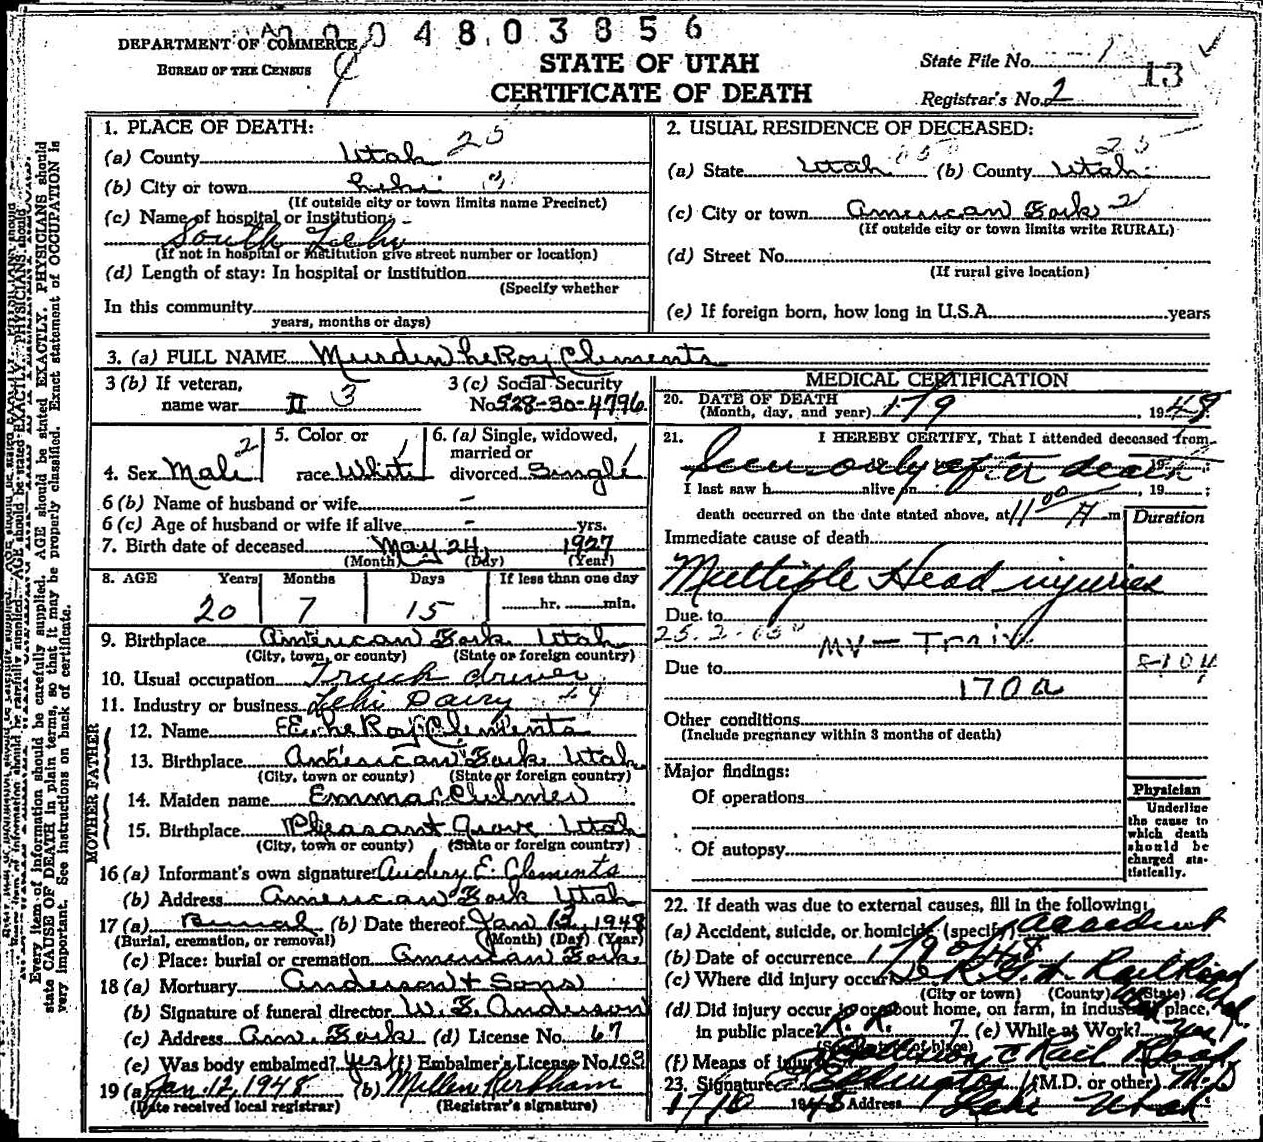 A 0 0 4 8 0 3 8 5 6
DEPARTMENT OF COMMERCE
BUREAU OF THE CENSUS
STATE OF UTAH
CERTIFICATE OF DEATH
State File No. 1 13
Registrar's No. 2
1. PLACE OF DEATH:
(a) County Utah 25
(b) City or town Lehi
(If outside city or town limits name Precinct)
(c) Name of hospital or institution:
South Lehi
(If not in hospital or institution give street number or location)
(d) Length of stay: In hospital or institution
(Specify whether
In this community
years, months or days)
2. USUAL RESIDENCE OF DECEASED:
(a) State Utah (b) County Utah 25
(c) City or town American Fork 2
(If outside city or town limits write RURAL)
(d) Street No.
(If rural give location)
(e) If foreign born, how long in U.S.A. years
3. (a) FULL NAME LeRoy Clements
3 (b) If veteran, name war II 3
3 (c) Social Security No. 528-30-4796
4. Sex Male 2
5. Color or race White 1
6. (a) Single, widowed, married or divorced Single 1
6 (b) Name of husband or wife -
6 (c) Age of husband or wife if alive - yrs.
7. Birth date of deceased May 24, 1927
(Month) (Day) (Year)
8. AGE Years Months Days If less than one day
20 7 15 hr. min.
9. Birthplace American Fork Utah
(City, town, or county) (State or foreign country)
10. Usual occupation Truck driver
11. Industry or business Lehi Dairy
FATHER
12. Name LeRoy Clements
13. Birthplace American Fork Utah
(City, town or county) (State or foreign country)
MOTHER
14. Maiden name Emma
15. Birthplace Pleasant Grove Utah
(City, town or county) (State or foreign country)
16 (a) Informant's own signature Audery E. Clements
(b) Address American Fork Utah
17 (a) Burial (b) Date thereof Jan 12, 1948
(Burial, cremation, or removal) (Month) (Day) (Year)
(c) Place: burial or cremation American Fork
18 (a) Mortuary Anderson & Sons
(b) Signature of funeral director W. E. Anderson
(c) Address Am. Fork (d) License No. 67
(e) Was body embalmed? yes (f) Embalmer's License No. 103
19 (a) Jan. 12, 1948 (b) Kirkham
(Date received local registrar) (Registrar's signature)
MEDICAL CERTIFICATION
20. DATE OF DEATH
(Month, day, and year) 1/9, 1948
21. I HEREBY CERTIFY, That I attended deceased from
Seen only after death
I last saw h alive on , 19 ;
death occurred on the date stated above, at 11 00 A m
Duration
Immediate cause of death
Multiple Head injuries
Due to
MV - Train
Due to
170a
Other conditions
(Include pregnancy within 3 months of death)
Major findings:
Of operations
Of autopsy
Physician
Underline
the cause to
which death
should be
charged sta-
tistically.
22. If death was due to external causes, fill in the following:
(a) Accident, suicide, or homicide (specify) accident
(b) Date of occurrence 1/9/48
(c) Where did injury occur Rail Road
(City or town) (County) (State)
(d) Did injury occur in or about home, on farm, in industrial place,
in public place? R. R. (e) While at Work? Yes
(Specify type of place)
(f) Means of injury Collision c Rail Road
23. Signature (M.D. or other) M.D
1/10 1948 Address Lehi Utah
Every item of information should be carefully supplied. AGE should be stated EXACTLY. PHYSICIANS should
state CAUSE OF DEATH in plain terms, so that it may be properly classified. Exact statement of OCCUPATION is
very important. See instructions on back of certificate.